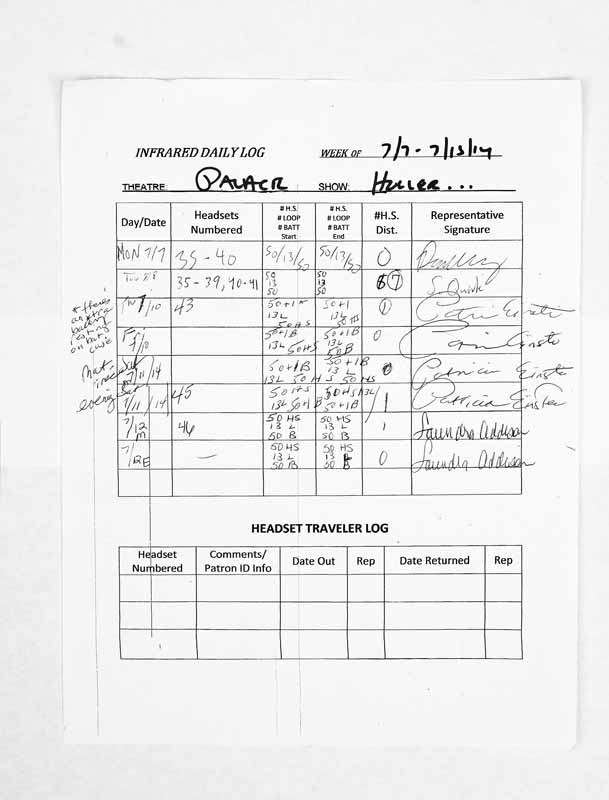 INFRARED DAILY LOG WEEK OF 7/7 - 7/13/14
THEATRE: PALACE SHOW: HOLLER...
Day/Date Headsets Numbered # H.S. # LOOP # BATT Start # H.S. # LOOP # BATT End #H.S. Dist. Representative Signature
MON 7/7 35 - 40 50/13/50 50/13/50 0
Tue 7/8 35 - 39, 40 - 41 50 13 50 50 13 50 7
7/10 43 50+1 13L 50HS 50+1 13L 50HS 1
7/10 50+1B 13L 50HS 50+1B 13L 50B 0
7/11/14 50+1B 13L 50HS 50+1B 13L 50HS 0 Patricia Einster
7/11/14 45 50HS 13L 50+1B 50HS 13L 50+1B 1 Patricia Einster
7/12 M 46 50 HS 13 L 50 B 50 HS 13 L 50 B 1 Saundra Addison
7/12E — 50 HS 13 L 50 B 50 HS 13 50 B 0 Saundra Addison
* there's
an extra
battery
on
case
Mat.
evening
HEADSET TRAVELER LOG
Headset Numbered Comments/ Patron ID Info Date Out Rep Date Returned Rep